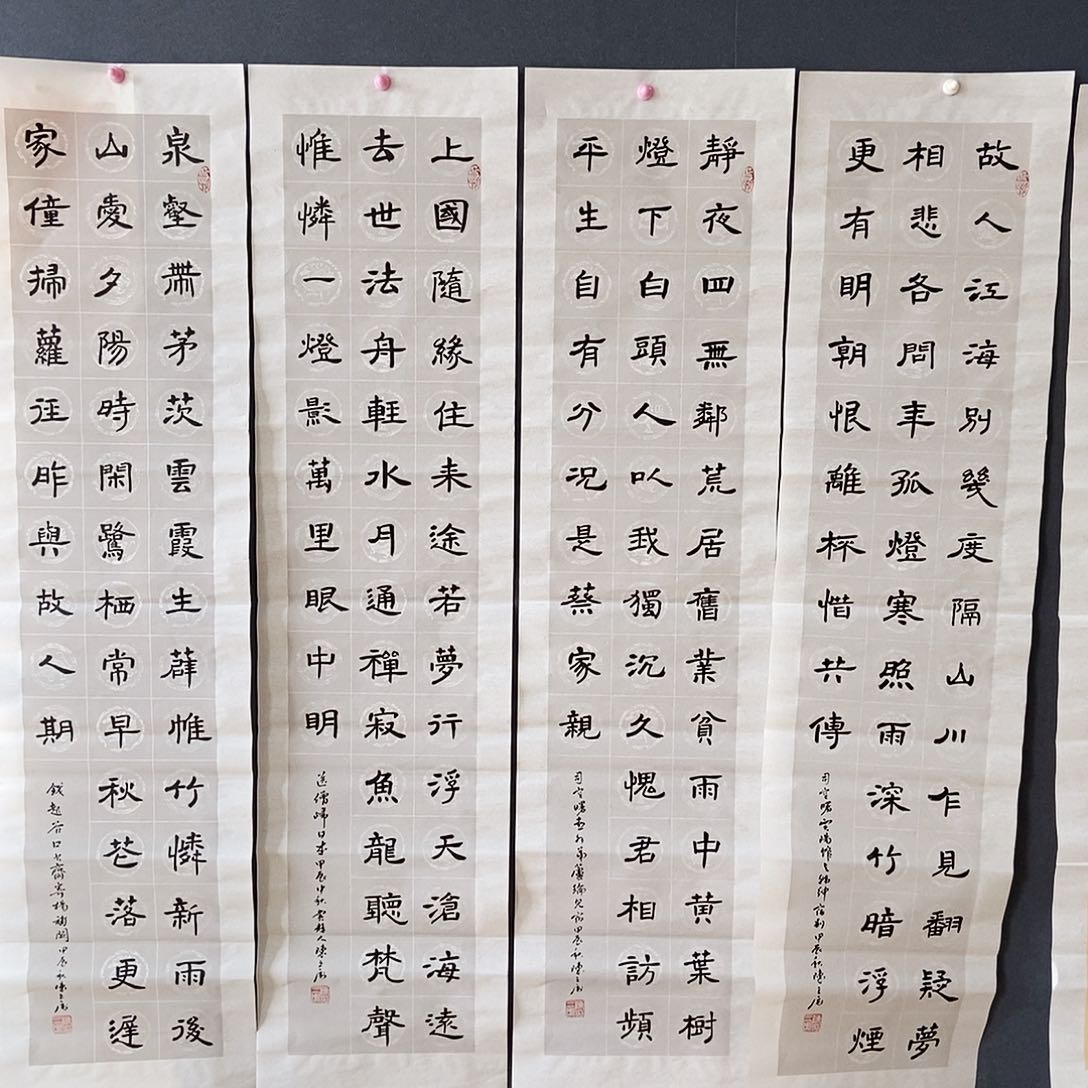 故人江海別幾度隔山川乍見翻疑夢
相悲各問年孤燈寒照雨深竹暗浮煙
更有明朝恨離杯惜共傳
司空曙雲陽館與韓紳宿別甲辰秋陳
靜夜四無鄰荒居舊業貧雨中黃葉樹
燈下白頭人以我獨沉久愧君相訪頻
平生自有分況是蔡家親
司空曙喜外弟盧綸見宿甲辰秋陳
上國隨緣住来途若夢行浮天滄海遠
去世法舟輕水月通禪寂魚龍聽梵聲
惟憐一燈影萬里眼中明
送僧歸日本甲辰中秋
泉壑帶茅茨雲霞生薜帷竹憐新雨後
山愛夕陽時閑鷺栖常早秋花落更遲
家僮掃蘿徑昨與故人期
錢起谷口書齋寄楊補闕甲辰秋陳